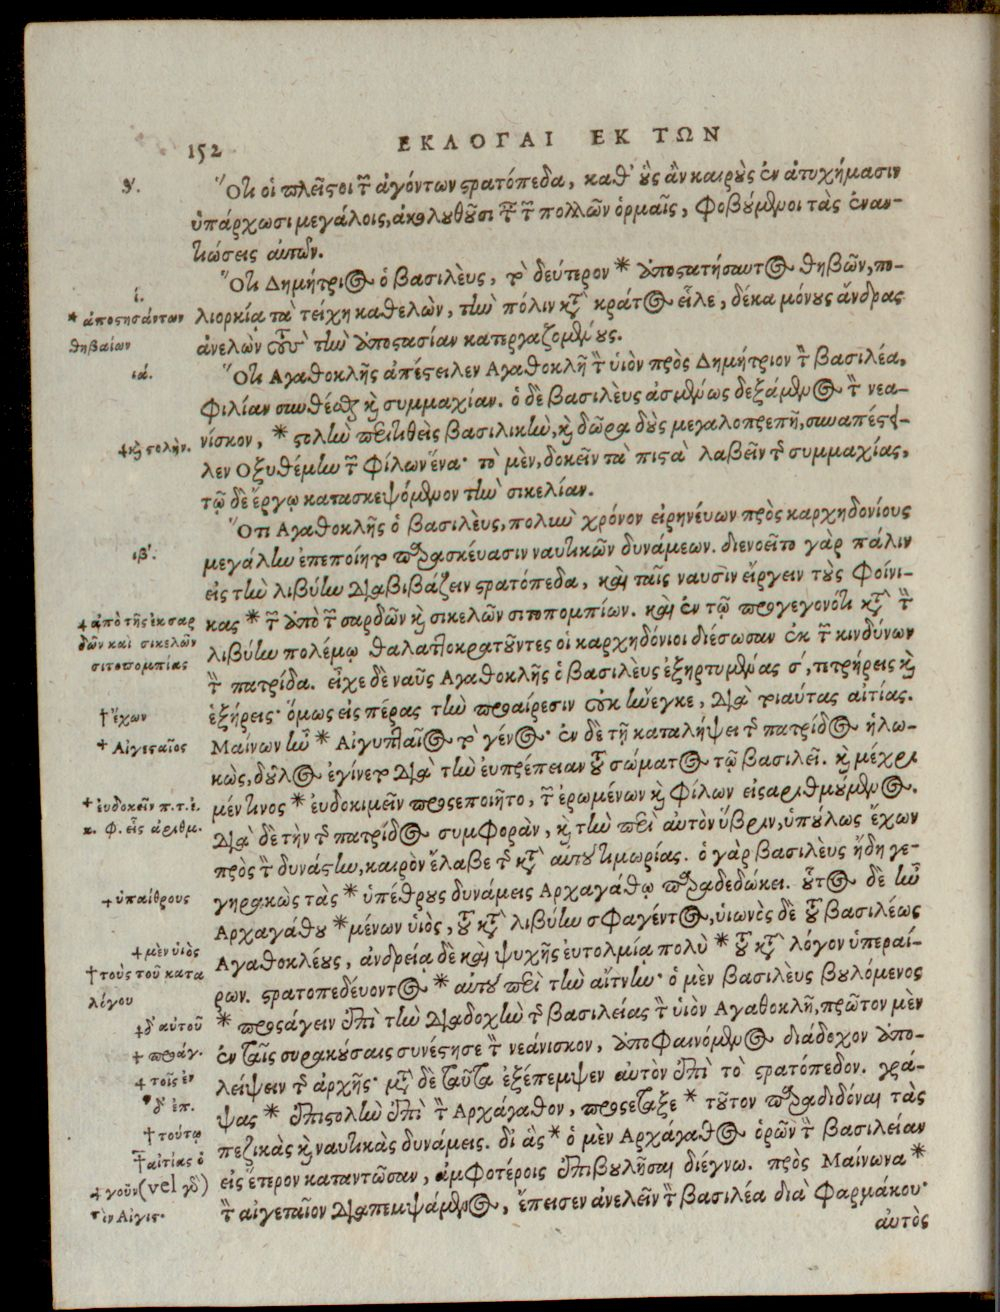 152
ΕΚΛΟΓΑΙ ΕΚ ΤΩΝ
θ'.
Ὅτι οἱ πλεῖςοι τῶν ἀγόντων ςρατόπεδα, καθ' οὓς ἂν καιροὺς ἐν ἀτυχήμασιν
ὑπάρχωσι μεγάλοις, ἀκολουθοῦσι ταῖς τῶν πολλῶν ὁρμαῖς, φοβούμενοι τὰς ἐναν-
τιώσεις αὐτῶν.
ί.
Ὅτι Δημήτριος ὁ βασιλεὺς, τὸ δεύτερον * ἀποςατήσαντος θηβῶν, πο-
* ἀποςησάντων
λιορκίᾳ τὰ τείχη καθελὼν, τὴν πόλιν κατὰ κράτος εἷλε, δέκα μόνους ἄνδρας
θηβαίων
ἀνελὼν τοὺς τὴν ἀποςασίαν κατεργαζομένους.
ιά.
Ὅτι Αγαθοκλῆς ἀπέςειλεν Αγαθοκλῆ τὸν υἱὸν πρὸς Δημήτριον τὸν βασιλέα,
φιλίαν συνθέσθαι καὶ συμμαχίαν. ὁ δὲ βασιλεὺς ἀσμένως δεξάμενος τὸν νεα-
+ καὶ ςολὴν.
νίσκον, * ςολὴν περιτιθεὶς βασιλικὴν, καὶ δῶρα δοὺς μεγαλοπρεπῆ, συναπέςει-
λεν Οξυθέμιν τῶν φίλων ἕνα· τὸ μὲν, δοκεῖν τὰ πιςὰ λαβεῖν τῆς συμμαχίας,
τῷ δὲ ἔργῳ κατασκεψόμενον τὴν σικελίαν.
ιβ'.
Ὅτι Αγαθοκλῆς ὁ βασιλεὺς, πολὺν χρόνον εἰρηνέυων πρὸς καρχηδονίους
μεγάλην ἐπεποίητο παρασκέυασιν ναυτικῶν δυνάμεων. διενοεῖτο γὰρ πάλιν
εἰς τὴν λιβύην διαβιβάζειν ςρατόπεδα, καὶ ταῖς ναυσὶν εἴργειν τοὺς Φοίνι-
+ ἀπὸ τῆς ἐκ σαρ
κας * τῶν ἀπὸ τῶν σαρδῶν καὶ σικελῶν σιτοπομπίων. καὶ ἐν τῷ προγεγονότι κατὰ τὴν
δῶν καὶ σικελῶν
λιβύην πολέμῳ θαλαττοκρατοῦντες οἱ καρχηδόνιοι διέσωσαν ἐκ τῶν κινδύνων
σιτοπομπίας
τὴν πατρίδα. εἶχε δὲ ναῦς Αγαθοκλῆς ὁ βασιλεὺς ἐξηρτυμένας σ', τετρήρεις καὶ
† ἔχων
ἑξήρεις· ὅμως εἰς πέρας τὴν προαίρεσιν οὐκ ἤνεγκε, διὰ τοιαύτας αἰτίας.
+ Αἰγεςαῖος
Μαίνων ἦν * Αἰγυπταῖος τὸ γένος· ἐν δὲ τῇ καταλήψει τῆς πατρίδος ἡλω-
κὼς, δοῦλος ἐγίνετο διὰ τὴν ἐυπρέπειαν τοῦ σώματος τῷ βασιλεῖ. καὶ μέχρι
+ ἐυδοκεῖν π. τ. ἐ.
μέν τινος * ἐυδοκιμεῖν προςεποιῆτο, τῶν ἐρωμένων καὶ φίλων εἰςαριθμούμενος.
κ. φ. εἷς ἀριθμ.
διὰ δὲ τὴν τῆς πατρίδος συμφορὰν, καὶ τὴν περὶ αὐτὸν ὕβριν, ὑπούλως ἔχων
πρὸς τὸν δυνάςην, καιρὸν ἔλαβε τῆς κατ' αὐτοῦ τιμωρίας. ὁ γὰρ βασιλεὺς ἤδη γε-
+ ὑπαίθρους
γηρακὼς τὰς * ὑπέθρους δυνάμεις Αρχαγάθῳ παραδεδώκει. οὗτος δὲ ἦν
+ μὲν υἱὸς
Αρχαγάθου * μένων υἱὸς, τοῦ κατὰ λιβύην σφαγέντος, υἱωνὸς δὲ τοῦ βασιλέως
† τοὺς τοῦ κατα
Αγαθοκλέους, ἀνδρείᾳ δὲ καὶ ψυχῆς ἐυτολμίᾳ πολὺ * τοῦ κατὰ λόγον ὑπεραί-
λόγου
ρων. ςρατοπεδέυοντος * αὐτοῦ περὶ τὴν αἴτνην· ὁ μὲν βασιλεὺς βουλόμενος
+ δ' αὐτοῦ
* προςάγειν ἐπὶ τὴν διαδοχὴν τῆς βασιλείας τὸν υἱὸν Αγαθοκλῆ, πρῶτον μὲν
+ προάγ.
ἐν ταῖς συρακούσαις συνέςησε τὸν νεάνισκον, ἀποφαινόμενος διάδοχον ἀπο-
+ τοῖς ἐν
λείψειν τῆς ἀρχῆς· μετὰ δὲ ταῦτα ἐξέπεμψεν αὐτὸν ἐπὶ τὸ ςρατόπεδον. γρά-
* δ' ἐπ.
ψας * ἐπιςολὴν ἐπὶ τὸν Αρχάγαθον, προςέταξε * τοῦτον παραδιδόναι τὰς
† τούτῳ
πεζικὰς καὶ ναυτικὰς δυνάμεις. δι' ἃς * ὁ μὲν Αρχάγαθος ὁρῶν τὴν βασιλείαν
† αἰτίας ὁ
εἰς ἕτερον καταντῶσαν, ἀμφοτέροις ἐπιβουλῆσαι διέγνω. πρὸς Μαίνωνα *
+ γοῦν (vel γὰρ)
τὸν αἰγεταῖον διαπεμψάμενος, ἔπεισεν ἀνελεῖν τὸν βασιλέα διὰ φαρμάκου·
τὸν Αἰγες.
αὐτὸς